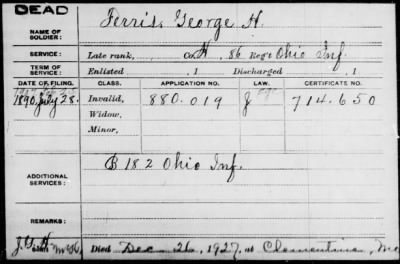 DEAD
NAME OF SOLDIER: Ferris, George H.
SERVICE: Late rank, Co. H, 86 Reg't Ohio Inf.
TERM OF SERVICE: Enlisted , 1 Discharged , 1
DATE OF FILING. CLASS. APPLICATION NO. LAW. CERTIFICATE NO.
1890, July 28. Invalid, 880.019 J 714.650
Widow,
Minor,
ADDITIONAL SERVICES: B 182 Ohio Inf.
REMARKS:
Died Dec 26, 1927, at Clementine, Mo